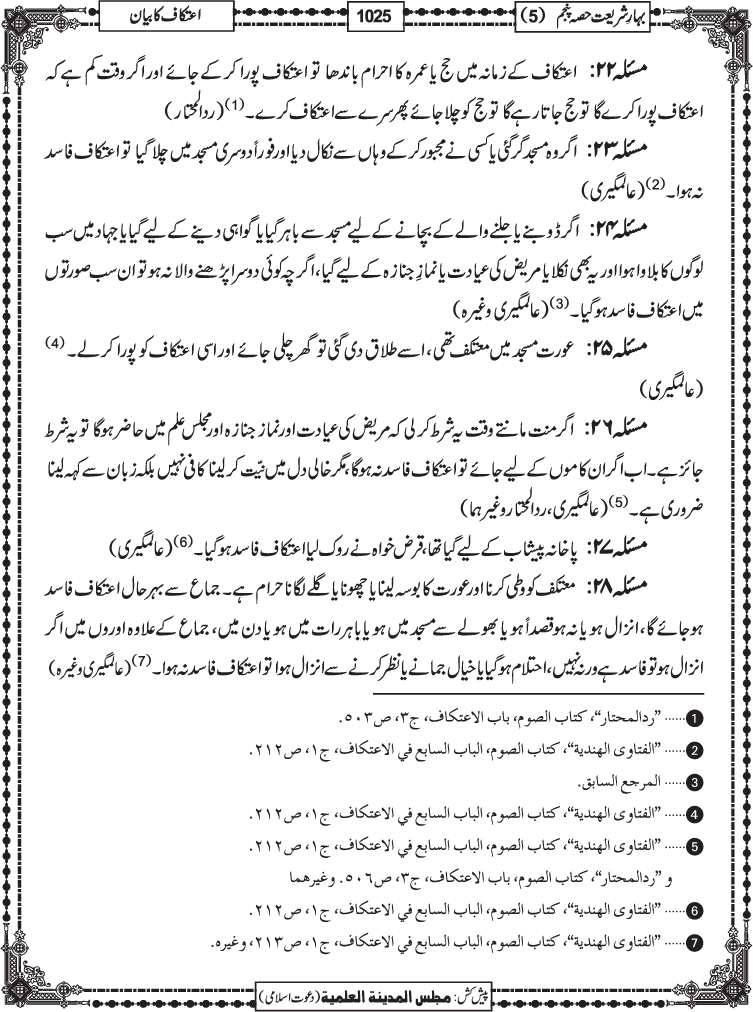 بہارِ شریعت حصہ پنجم (5)
1025
اعتکاف کا بیان
مسئلہ ۲۲: اعتکاف کے زمانہ میں حج یا عمرہ کا احرام باندھا تو اعتکاف پورا کر کے جائے اور اگر وقت کم ہے کہ
اعتکاف پورا کرے گا تو حج جاتا رہے گا تو حج کو چلا جائے پھر سرے سے اعتکاف کرے۔(1) (ردالمحتار)
مسئلہ ۲۳: اگر وہ مسجد گر گئی یا کسی نے مجبور کر کے وہاں سے نکال دیا اور فوراً دوسری مسجد میں چلا گیا تو اعتکاف فاسد
نہ ہوا۔(2) (عالمگیری)
مسئلہ ۲۴: اگر ڈوبنے یا جلنے والے کے بچانے کے لیے مسجد سے باہر گیا یا گواہی دینے کے لیے گیا یا جہاد میں سب
لوگوں کا بلاوا ہوا اور یہ بھی نکلا یا مریض کی عیادت یا نمازِ جنازہ کے لیے گیا، اگرچہ کوئی دوسرا پڑھنے والا نہ ہو تو ان سب صورتوں
میں اعتکاف فاسد ہوگیا۔(3) (عالمگیری وغیرہ)
مسئلہ ۲۵: عورت مسجد میں معتکف تھی، اسے طلاق دی گئی تو گھر چلی جائے اور اسی اعتکاف کو پورا کر لے۔(4)
(عالمگیری)
مسئلہ ۲۶: اگر منت مانتے وقت یہ شرط کر لی کہ مریض کی عیادت اور نماز جنازہ اور مجلس علم میں حاضر ہوگا تو یہ شرط
جائز ہے۔ اب اگر ان کاموں کے لیے جائے تو اعتکاف فاسد نہ ہوگا، مگر خالی دل میں نیّت کر لینا کافی نہیں بلکہ زبان سے کہہ لینا
ضروری ہے۔(5) (عالمگیری، ردالمحتار وغیرہما)
مسئلہ ۲۷: پاخانہ پیشاب کے لیے گیا تھا، قرض خواہ نے روک لیا اعتکاف فاسد ہوگیا۔(6) (عالمگیری)
مسئلہ ۲۸: معتکف کو وطی کرنا اور عورت کا بوسہ لینا یا چھونا یا گلے لگانا حرام ہے۔ جماع سے بہرحال اعتکاف فاسد
ہوجائے گا، انزال ہو یا نہ ہو قصداً ہو یا بھولے سے مسجد میں ہو یا باہر رات میں ہو یا دن میں، جماع کے علاوہ اوروں میں اگر
انزال ہو تو فاسد ہے ورنہ نہیں، احتلام ہوگیا یا خیال جمانے یا نظر کرنے سے انزال ہوا تو اعتکاف فاسد نہ ہوا۔(7) (عالمگیری وغیرہ)
1 ...... ”ردالمحتار“، کتاب الصوم، باب الاعتکاف، ج۳، ص۵۰۳.
2 ...... ”الفتاوی الھندیة“، کتاب الصوم، الباب السابع في الاعتکاف، ج۱، ص۲۱۲.
3 ...... المرجع السابق.
4 ...... ”الفتاوی الھندیة“، کتاب الصوم، الباب السابع في الاعتکاف، ج۱، ص۲۱۲.
5 ...... ”الفتاوی الھندیة“، کتاب الصوم، الباب السابع في الاعتکاف، ج۱، ص۲۱۲.
و ”ردالمحتار“، کتاب الصوم، باب الاعتکاف، ج۳، ص۵۰۶. وغیرھما
6 ...... ”الفتاوی الھندیة“، کتاب الصوم، الباب السابع في الاعتکاف، ج۱، ص۲۱۲.
7 ...... ”الفتاوی الھندیة“، کتاب الصوم، الباب السابع في الاعتکاف، ج۱، ص۲۱۳، وغیرہ.
پیش کش: مجلس المدینة العلمیة (دعوت اسلامی)